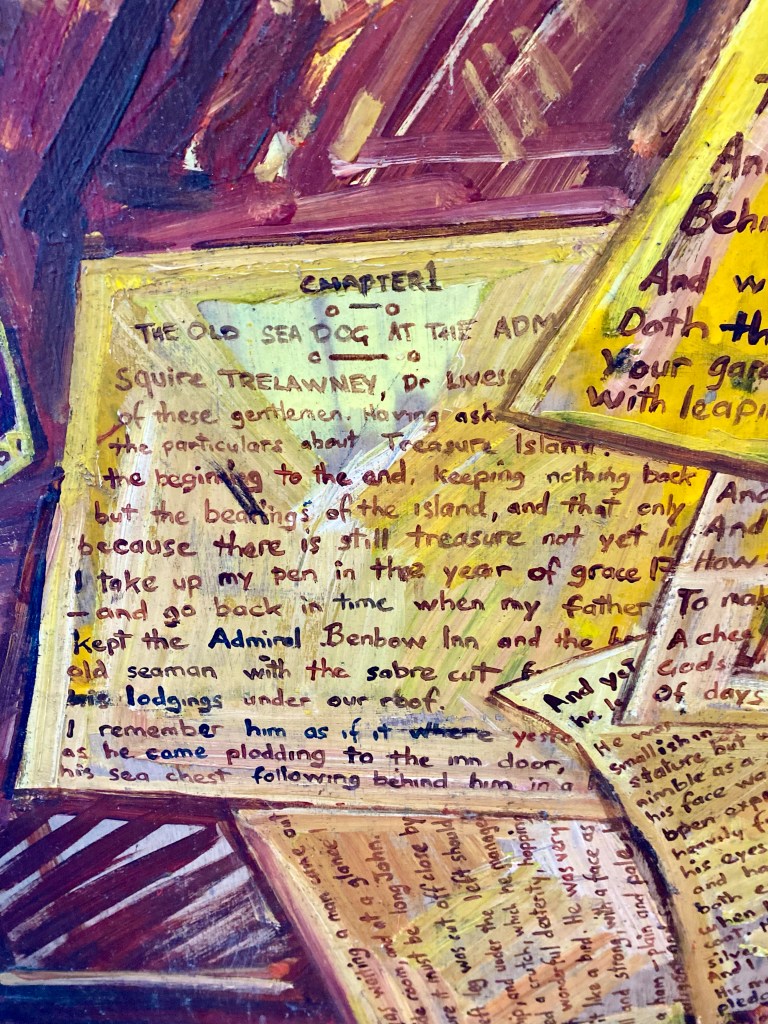 CHAPTER 1
THE OLD SEA DOG AT THE ADM
Squire TRELAWNEY, Dr Livess
of these gentlemen. Having ask
the particulars about Treasure Island.
the begining to the end, keeping nothing back
but the bearings of the island, and that only
because there is still treasure not yet
I take up my pen in the year of grace 17
- and go back in time when my father
kept the Admiral Benbow Inn and the
old seaman with the sabre cut
his lodgings under our roof.
I remember him as if it where yest
as he came plodding to the inn door,
his sea chest following behind him in a
An
Behi
And w
Doth th
Your gar
with leapi
And
And
How
To mak
A chee
Gods
Of days
And yet
he
He was
smallish in
stature but
nimble as a
his face wa
open expr
heavily f
his eyes
and ha
both e
when
waiting a man came out
room, and at a glance I
must be long John.
was cut off close by
left should
leg and under the
crutch, which he managed
wonderful dexterity, hopping
like a bird. He was very
and strong, with a face as
a ham - plain and pale